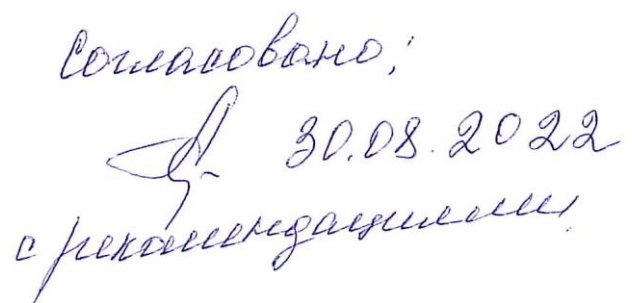 Согласовано;
30.08.2022
с рекомендациями